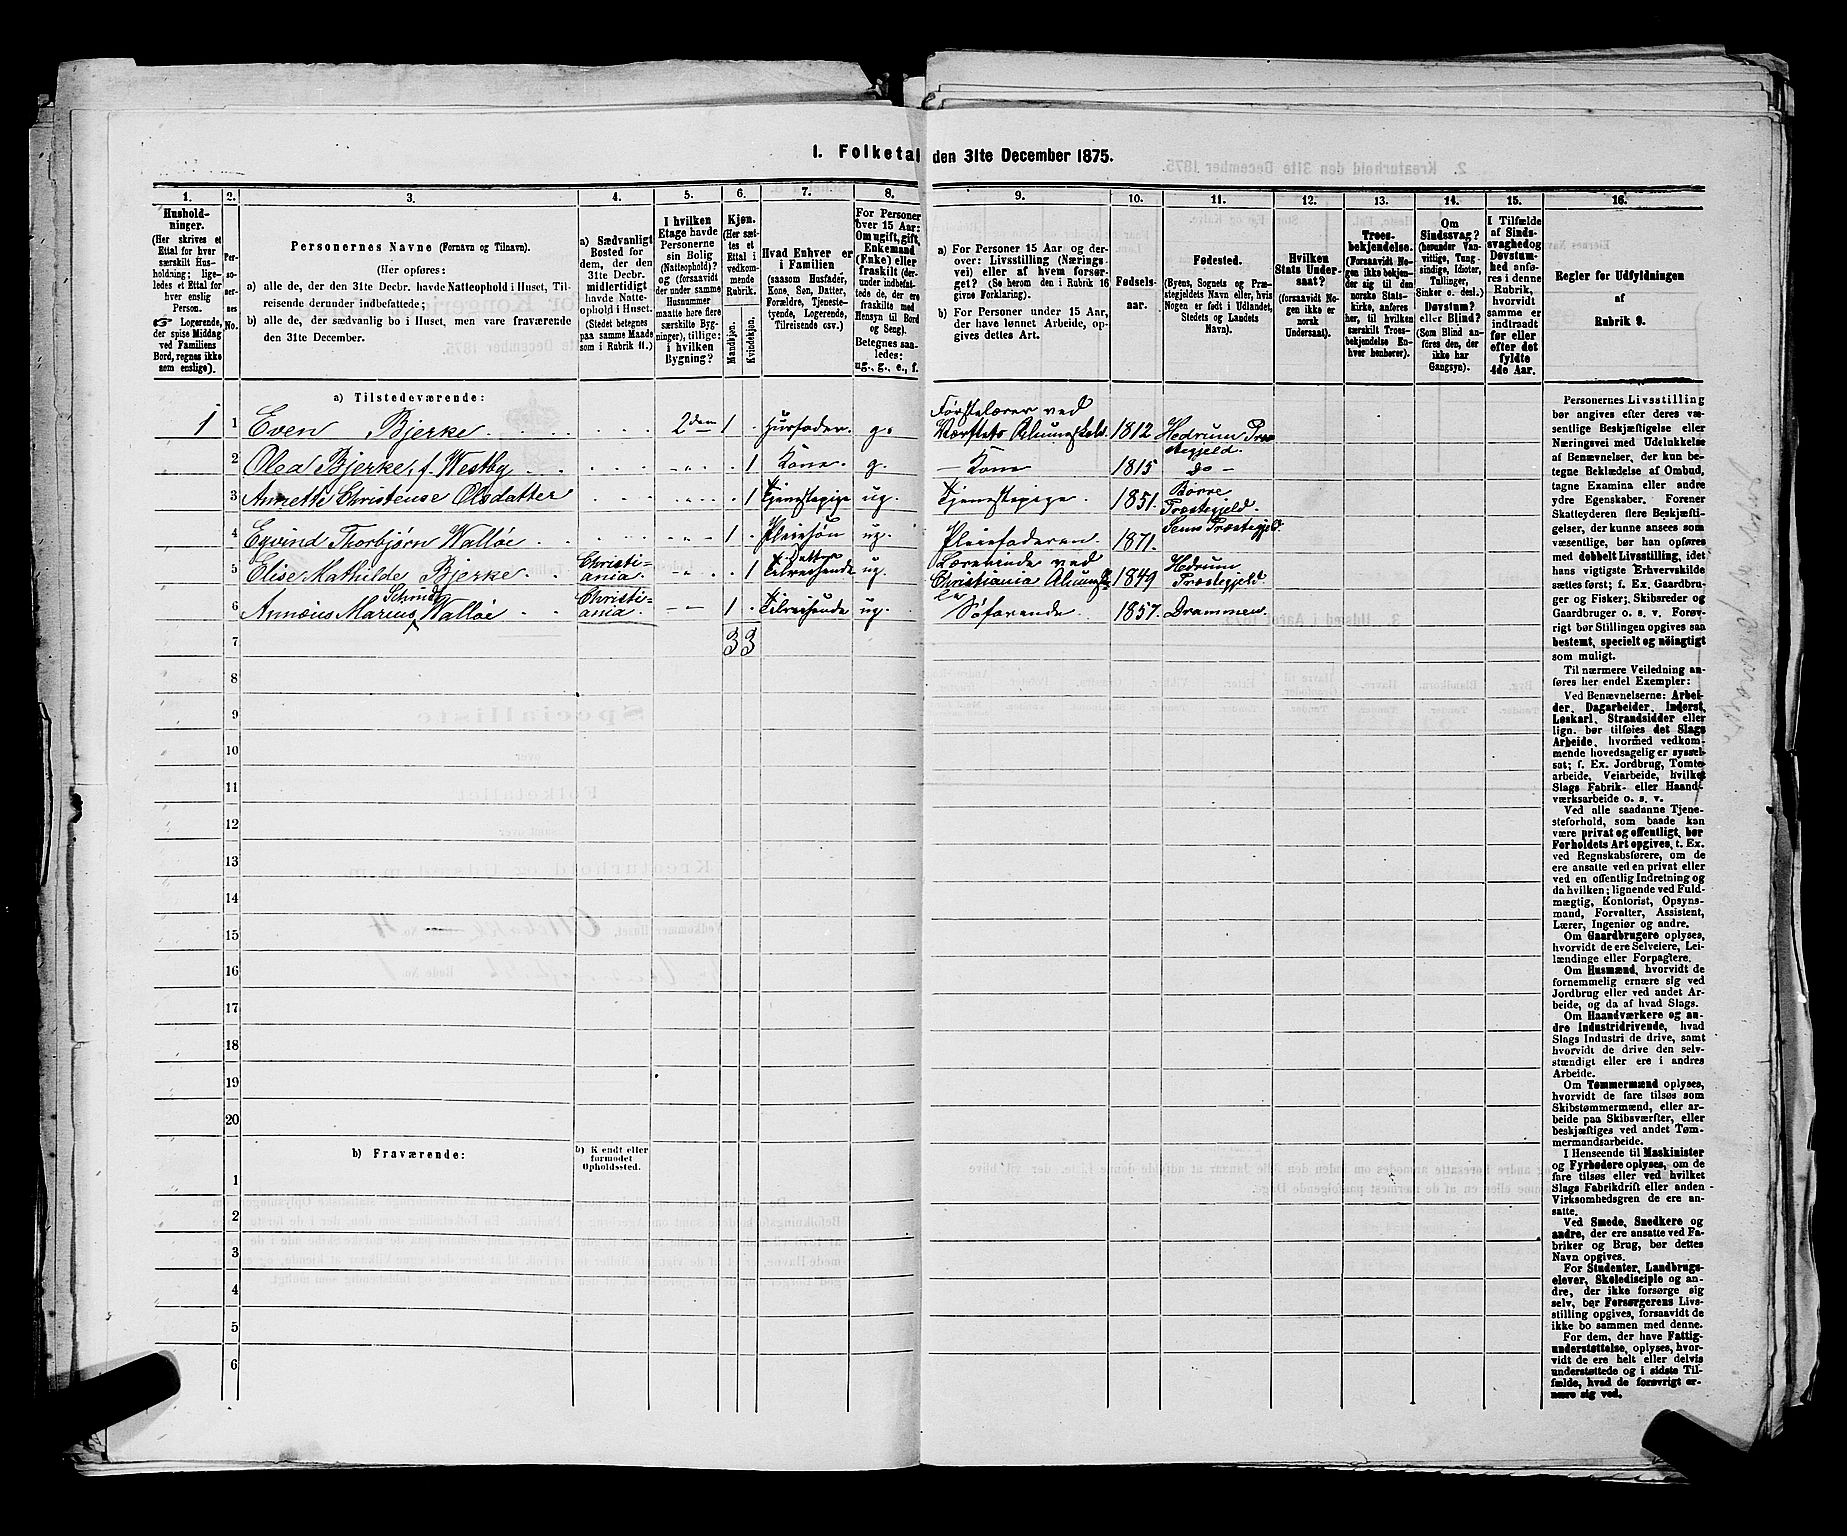 1. Folketal den 31te December 1875.
1. 2. 3. 4. 5. 6. 7. 8. 9. 10. 11. 12. 13. 14. 15. 16.
Hushold-
ninger.
(Her skrives et
Ettal for hver
særskilt Hus-
holdning; lige-
ledes et Ettal for
hver enslig
Person.
Logerende,
der spise Middag
ved Familiens
Bord, regnes ikke
som enslige).
Per-
so-
ner-
nes
No.
Personernes Navne (Fornavn og Tilnavn).
(Her opføres:
a) alle de, der den 31te Decbr. havde Natteophold i Huset, Til-
reisende derunder indbefattede;
b) alle de, der sædvanlig bo i Huset, men vare fraværende
den 31te December.
a) Sædvanligt
Bosted for
dem, der den
31te Decbr.
midlertidigt
havde Natte-
ophold i Huset.
(Stedet betegnes
paa samme Maade
som i Rubrik 11.)
I hvilken
Etage havde
Personerne
sin Bolig
(Natteophold)?
og (forsaavidt
der under samme
Husnummer
maatte høre flere
særskilte Byg-
ninger), tillige:
i hvilken
Bygning?
Kjøn.
(Her sæt-
tes et
Ettal i
vedkom-
mende
Rubrik.
Mandkjøn.
Kvindekjøn.
Hvad Enhver er
i Familien
(saasom Husfader,
Kone, Søn, Datter,
Forældre, Tjeneste-
tyende, Logerende,
Tilreisende osv.)
For Personer
over 15 Aar:
Om ugift, gift,
Enkemand
(Enke) eller
fraskilt (der-
under indbefat-
tede de, der ere
fraskilte med
Hensyn til Bord
og Seng).
Betegnes saa-
ledes:
ug., g., e., f.
a) For Personer 15 Aar og der-
over: Livsstilling (Nærings-
vei) eller af hvem forsør-
get? (Se herom den i Rubrik 16
givne Forklaring).
b) For Personer under 15 Aar,
der have lønnet Arbeide, op-
gives dettes Art.
Fødsels-
aar.
Fødested.
(Byens, Sognets og Præ-
stegjeldets Navn eller, hvis
Nogen er født i Udlandet,
Stedets og Landets
Navn).
Hvilken
Stats Under-
saat?
(forsaavidt No-
gen ikke er
norsk
Undersaat).
Troes-
bekjendelse.
(Forsaavidt No-
gen ikke bekjen-
der sig til den
norske Stats-
kirke, anføres
her, til hvilken
særskilt Troes-
bekjendelse En-
hver henhører).
Om
Sindssvag?
(herunder Van-
vittige, Tung-
sindige, Idioter,
Tullinger,
Sinker o. desl.)
Døvstum?
eller Blind?
(Som Blind an-
føres den, der
ikke har
Gangsyn).
I Tilfælde
af Sinds-
svaghed og
Døvstum-
hed anfø-
res i denne
Rubrik,
hvorvidt
samme er
indtraadt
før eller
efter det
fyldte
4de Aar.
Regler for Udfyldningen
af
Rubrik 9.
a) Tilstedeværende:
1 1 Even Bjerke 2den 1 Husfader. g. Førstelærer ved Værftets Almueskole 1812 Hedrum Præstegjeld.
2 Olea Bjerke, f. Westby 1 Kone. g. - Kone 1815 do -
3 Annette Christense Olsdatter 1 Tjenestepige ug. Tjenestepige. 1851. Borre Præstegjeld.
4 Eyvind Thorbjørn Walløe 1 Pleiesøn ug. Pleiefaderen. 1871. Sems Præstegjeld.
5 Elise Mathilde Bjerke Christiania. 1 Datter Tilreisende ug. Lærerinde ved Christiania Almuesk 1849 Hedrum Præstegjeld.
6 Annæus Marius Schmidt Walløe Christiania 1 Tilreisende ug. Søfarende. 1857. Drammen.
7 3 3
8
9
10
11
12
13
14
15
16
17
18
19
20
b) Fraværende:
b) Kjendt eller
formodet
Opholdssted.
1
2
3
4
5
6
Personernes Livsstilling
bør angives efter deres væ-
sentlige Beskjæftigelse eller
Næringsvei med Udelukkelse
af Benævnelser, der kun be-
tegne Beklædelse af Ombud,
tagne Examina eller andre
ydre Egenskaber. Forener
Skatteyderen flere Beskjæfti-
gelser, der kunne ansees som
væsentlige, bør han opføres
med dobbelt Livsstilling, idet
hans vigtigste Erhvervskilde
sættes først; f. Ex. Gaardbru-
ger og Fisker; Skibsreder og
Gaardbruger o. s. v. Forøv-
rigt bør Stillingen opgives saa
bestemt, specielt og nøiagtigt
som muligt.
Til nærmere Veiledning an-
føres her endel Exempler:
Ved Benævnelserne: Arbei-
der, Dagarbeider, Inderst,
Løskarl, Strandsidder eller
lign. bør tilføies det Slags
Arbeide, hvormed vedkom-
mende hovedsagelig er syssel-
sat; f. Ex. Jordbrug, Tomte-
arbeide, Veiarbeide, hvilket
Slags Fabrik- eller Haand-
værksarbeide o. s. v.
Ved alle saadanne Tjene-
steforhold, som baade kan
være privat og offentligt, bør
Forholdets Art opgives, t. Ex.
ved Regnskabsførere, om de
ere ansatte ved en privat eller
ved en offentlig Indretning og
da hvilken; lignende ved Fuld-
mægtig, Kontorist, Opsyns-
mand, Forvalter, Assistent,
Lærer, Ingeniør og andre.
Om Gaardbrugere oplyses,
hvorvidt de ere Selveiere, Lei-
lændinge eller Forpagtere.
Om Husmænd, hvorvidt de
fornemmelig ernære sig ved
Jordbrug eller ved andet Ar-
beide, og da af hvad Slags.
Om Haandværkere og an-
dre Industridrivende, hvad
Slags Industri de drive, samt
hvorvidt de drive den selv-
stændigt eller ere i andres
Arbeide.
Om Tømmermænd oplyses,
hvorvidt de fare tilsøs som
Skibstømmermænd, eller ar-
beide paa Skibsværfter, eller
beskjæftiges ved andet Tøm-
mermandsarbeide.
I Henseende til Maskinister
og Fyrbødere oplyses, om de
fare tilsøs eller ved hvilket
Slags Fabrikdrift eller anden
Virksomhedsgren de ere an-
satte.
Ved Smede, Snedkere og
andre, der ere ansatte ved Fa-
briker og Brug, bør dettes
Navn opgives.
For Studenter, Landbrugs-
elever, Skoledisciple og an-
dre, der ikke forsørge sig
selv, bør Forsørgerens Livs-
stilling opgives, forsaavidt de
ikke bo sammen med denne.
For dem, der have Fattig-
understøttelse, oplyses, hvor-
vidt de ere helt eller delvis
understøttede og i sidste Til-
fælde, hvad de forøvrigt er-
nære sig ved.